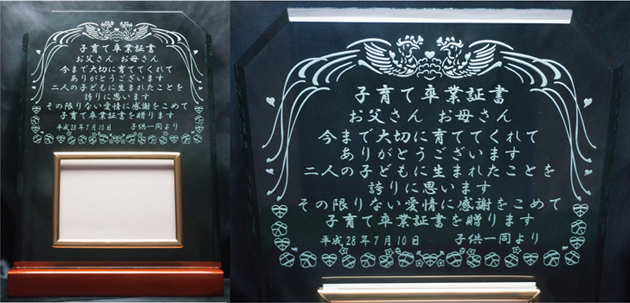 子育て卒業証書
お父さん お母さん
今まで大切に育ててくれて
ありがとうございます
二人の子どもに生まれたことを
誇りに思います
その限りない愛情に感謝をこめて
子育て卒業証書を贈ります
平成28年7月10日 子供一同より
子育て卒業証書
お父さん お母さん
今まで大切に育ててくれて
ありがとうございます
二人の子どもに生まれたことを
誇りに思います
その限りない愛情に感謝をこめて
子育て卒業証書を贈ります
平成28年7月10日 子供一同より